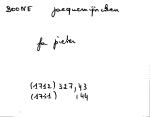 BOONE Jacquemijncken
fa pieter
(1712) 327, 43
(1711) , 44